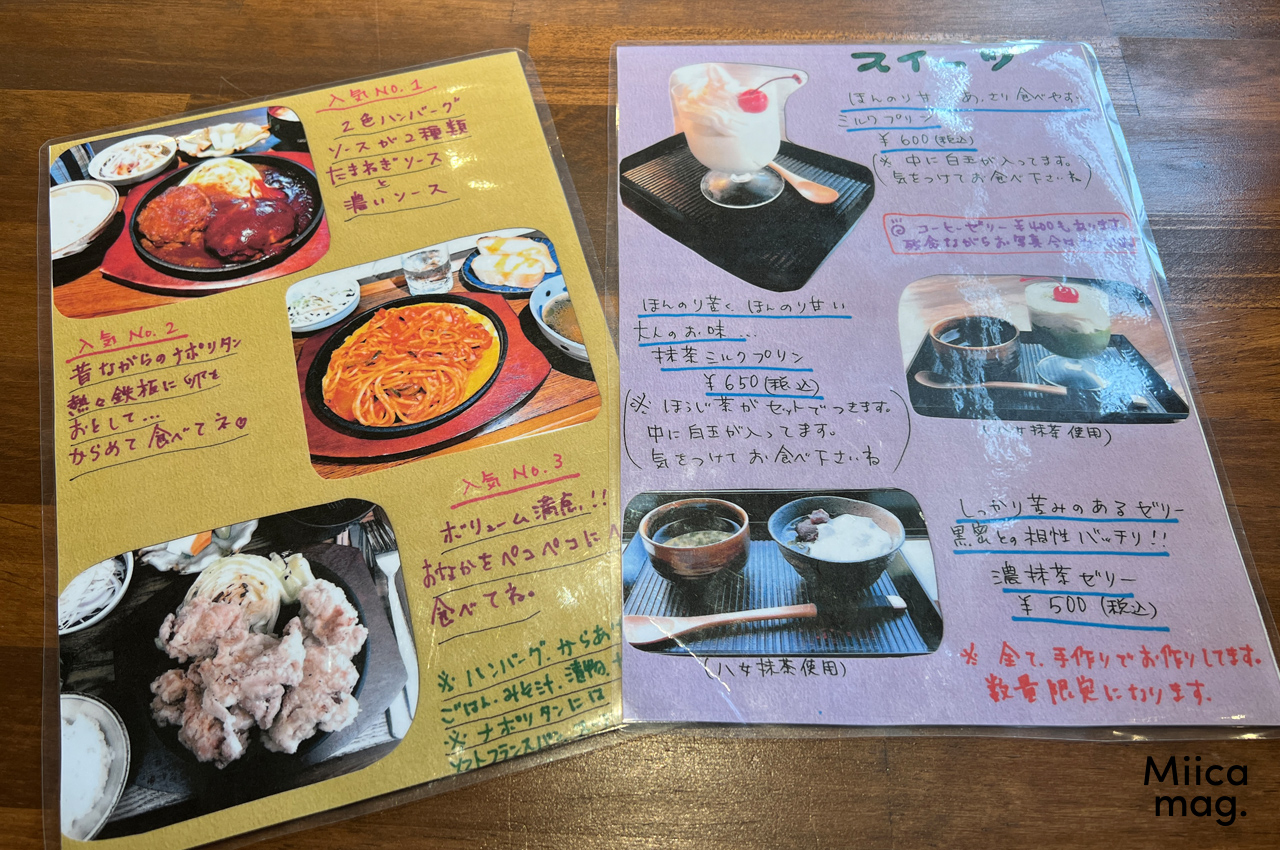 入気 No.1
2色ハンバーグ
ソースが2種類
たまねぎソース
と
濃いソース
入気 No.2
昔ながらのナポリタン
熱々鉄板に卵を
おとして…
からめて食べてネ
入気 No.3
ボリューム満点!!
おなかをペコペコに
食べてね。
※ ハンバーグ、からあ
ごはん・みそ汁・漬物
※ ナポリタンには
ソフトフランスパン
スイーツ
ほんのり甘 あっさり食べやす
ミルクプリン
¥600(税込)
(※ 中に白玉が入ってます。
気をつけてお食べ下さいね)
コーヒーゼリー ¥400もあります
残念ながらお写真今日
ほんのり苦く、ほんのり甘い
大人のお味…
抹茶ミルクプリン
¥650(税込)
(※ ほうじ茶がセットでつきます。
中に白玉が入ってます。
気をつけてお食べ下さいね)
(八女抹茶使用)
しっかり苦みのあるゼリー
黒蜜との相性バッチリ!!
濃抹茶ゼリー
¥500(税込)
(八女抹茶使用)
※ 全て、手作りでお作りしてます。
数量限定になります。
Miica
mag.